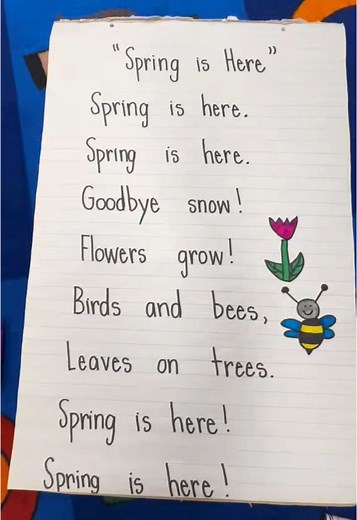 "Spring is Here"
Spring is here.
Spring is here.
Goodbye snow!
Flowers grow!
Birds and bees,
Leaves on trees.
Spring is here!
Spring is here!